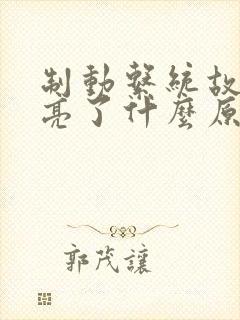 制動繫統故
亮了什麼原
郭茂讓